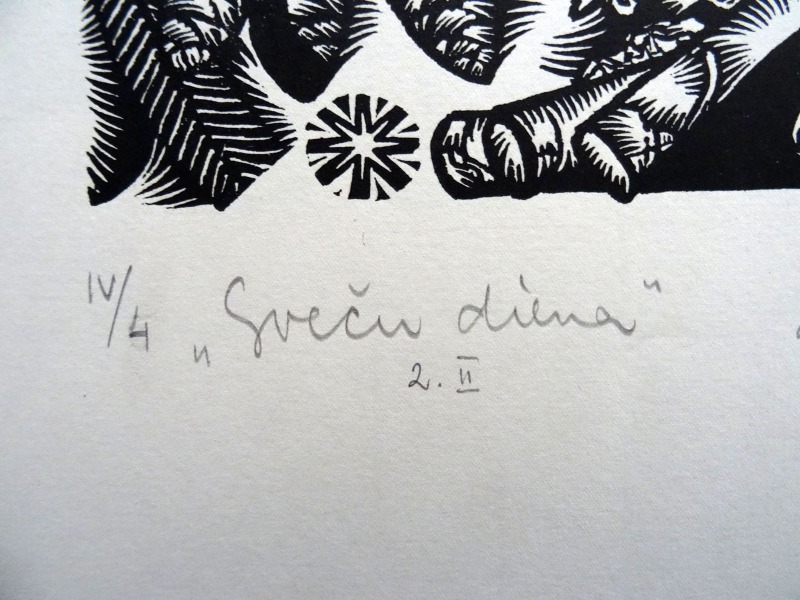 IV/4 „Sveču diena"
2. II